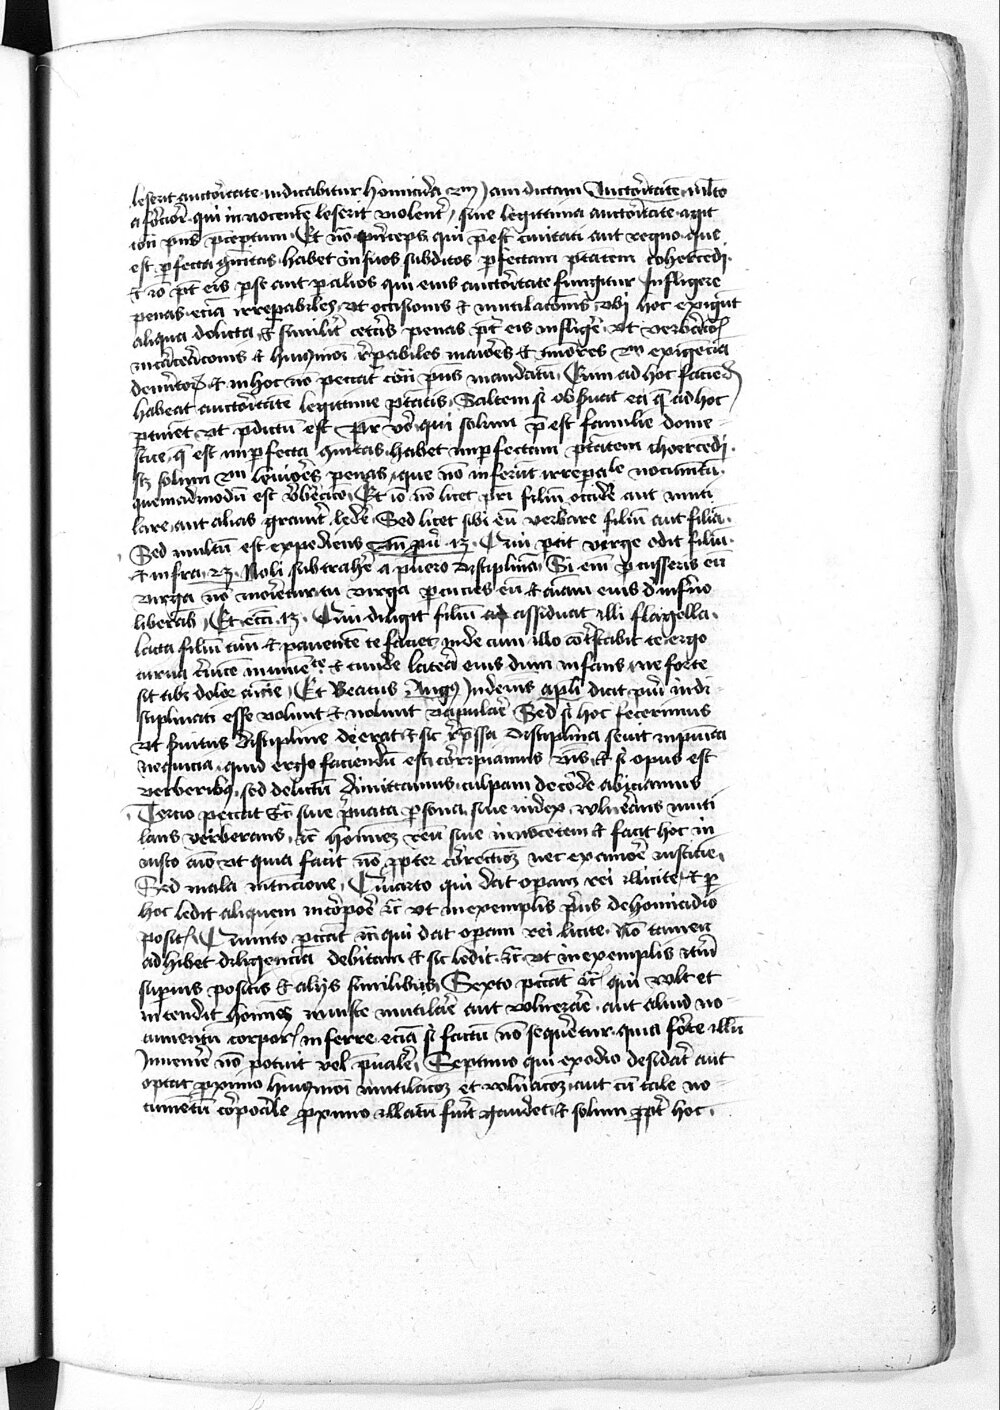 leserit auctoritate iudicabitur homicida etc Jam dictam Auctoritatem multo
a fortiori qui innocentem leserit violenter, siue legittima auctoritate agit
contra presens preceptum. Et nota princeps qui preest ciuitati aut regno que
est perfecta communitas habet in suos subditos perfectam potestatem cohercendi.
Et ideo potest eis per se aut per alios qui eius auctoritate funguntur Infligere
penas etiam irreparabiles, vt occisionis et mutilationis, vbi hoc exigunt
aliqua delicta, et similiter ceteras penas potest eis infligere, vt verberationis
incarcerationis et huiusmodi reparabiles maiores et minores secundum exigenciam
demeritorum, et in hoc non peccat contra presens mandatum, Cum ad hoc faciendum
habeat auctoritatem legittime potestatis, Saltem si obseruat ea que ad hoc
pertinent, vt predictum est Pater vero qui solum preest familie dome-
stice, que est imperfecta communitas, habet imperfectam potestatem cohercendi.
scilicet solum secundum leuiores penas, que non inferunt irreparabile nocumentum.
quemadmodum est verberatio, Et ideo non licet patri filium occidere aut muti
lare, aut alias grauiter ledere, Sed licet sibi eum verberare filium aut filiam.
Sed multum est expediens vnde prouerb. 13. Qui parcit virge odit filium.
et infra. 23. Noli subtrahere a puero disciplinam, Si enim percusseris eum
virga non morietur, tu virga percuties eum et animam eius de inferno
liberabis, Et ecci. 30. Qui diligit filium assiduat illi flagella.
lacta filium tuum et pauentem te faciet, lude cum illo contristabit te, ergo
curua ceruicem in iuuentute et tunde latera eius dum infans ne forte
sit tibi dolor anime, Et Beatus Augus dicit pueri indi-
sciplinati esse volunt et nolunt vapulare Sed si hoc fecerimus
vt seueritas discipline deerat, et sic repressa disciplina seuit impunita
nequicia, quid ergo faciendum est, corripiamus verbis, et si opus est
verberibus, sed delictum dimittamus, culpam de corde abiciamus
Tercio peccat etc siue priuata persona, siue iudex, vulnerans muti
lans verberans, etc hominem reum siue innocentem et facit hoc in
iusto animo vt quia facit non propter correctionem nec ex amore iusticie,
Sed mala intencione, Quarto qui dat operam rei illicite, et per
hoc ledit aliquem in corpore etc vt in exemplis prius de homicidio
positis, Quinto peccat etc qui dat operam rei licite, Non tamen
adhibet diligenciam debitam et sic ledit etc vt in exemplis iterum
superius positis et alijs similibus, Sexto peccat etc qui vult et
intendit hominem iniuste mutilare aut vulnerare, aut aliud no-
cumentum corporis inferre, etiam si factum non sequeretur, quia forte illum
Inuenire non potuit vel preualere, Septimo qui ex odio desiderat aut
optat proximo huiusmodi mutilationem et vulnerationem, aut cum tale no-
cumentum corporale proximo illatum fuerit gaudet, et solum propter hoc.